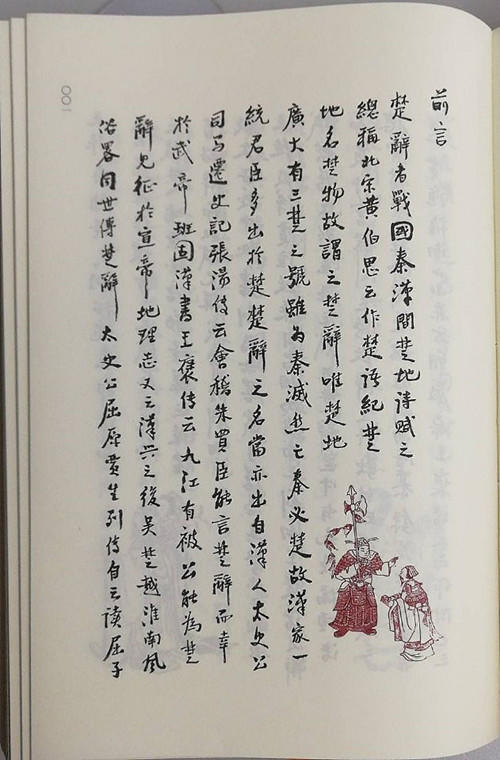 前言
楚辭者戰國秦漢間楚地詩賦之
總稱北宋黃伯思云作楚語紀楚
地名楚物故謂之楚辭唯楚地
廣大有三楚之號雖为秦滅然亡秦必楚故漢家一
統君臣多出於楚楚辭之名當亦出自漢人太史公
司馬遷史記張湯传云會稽朱買臣能言楚辭而幸
於武帝班固漢書王褒传云九江有被公能為楚
辭見征於宣帝地理志又云漢興之後吳楚越淮南風
俗畧同世傳楚辭太史公屈原賈生列传自云讀屈子
〇〇一